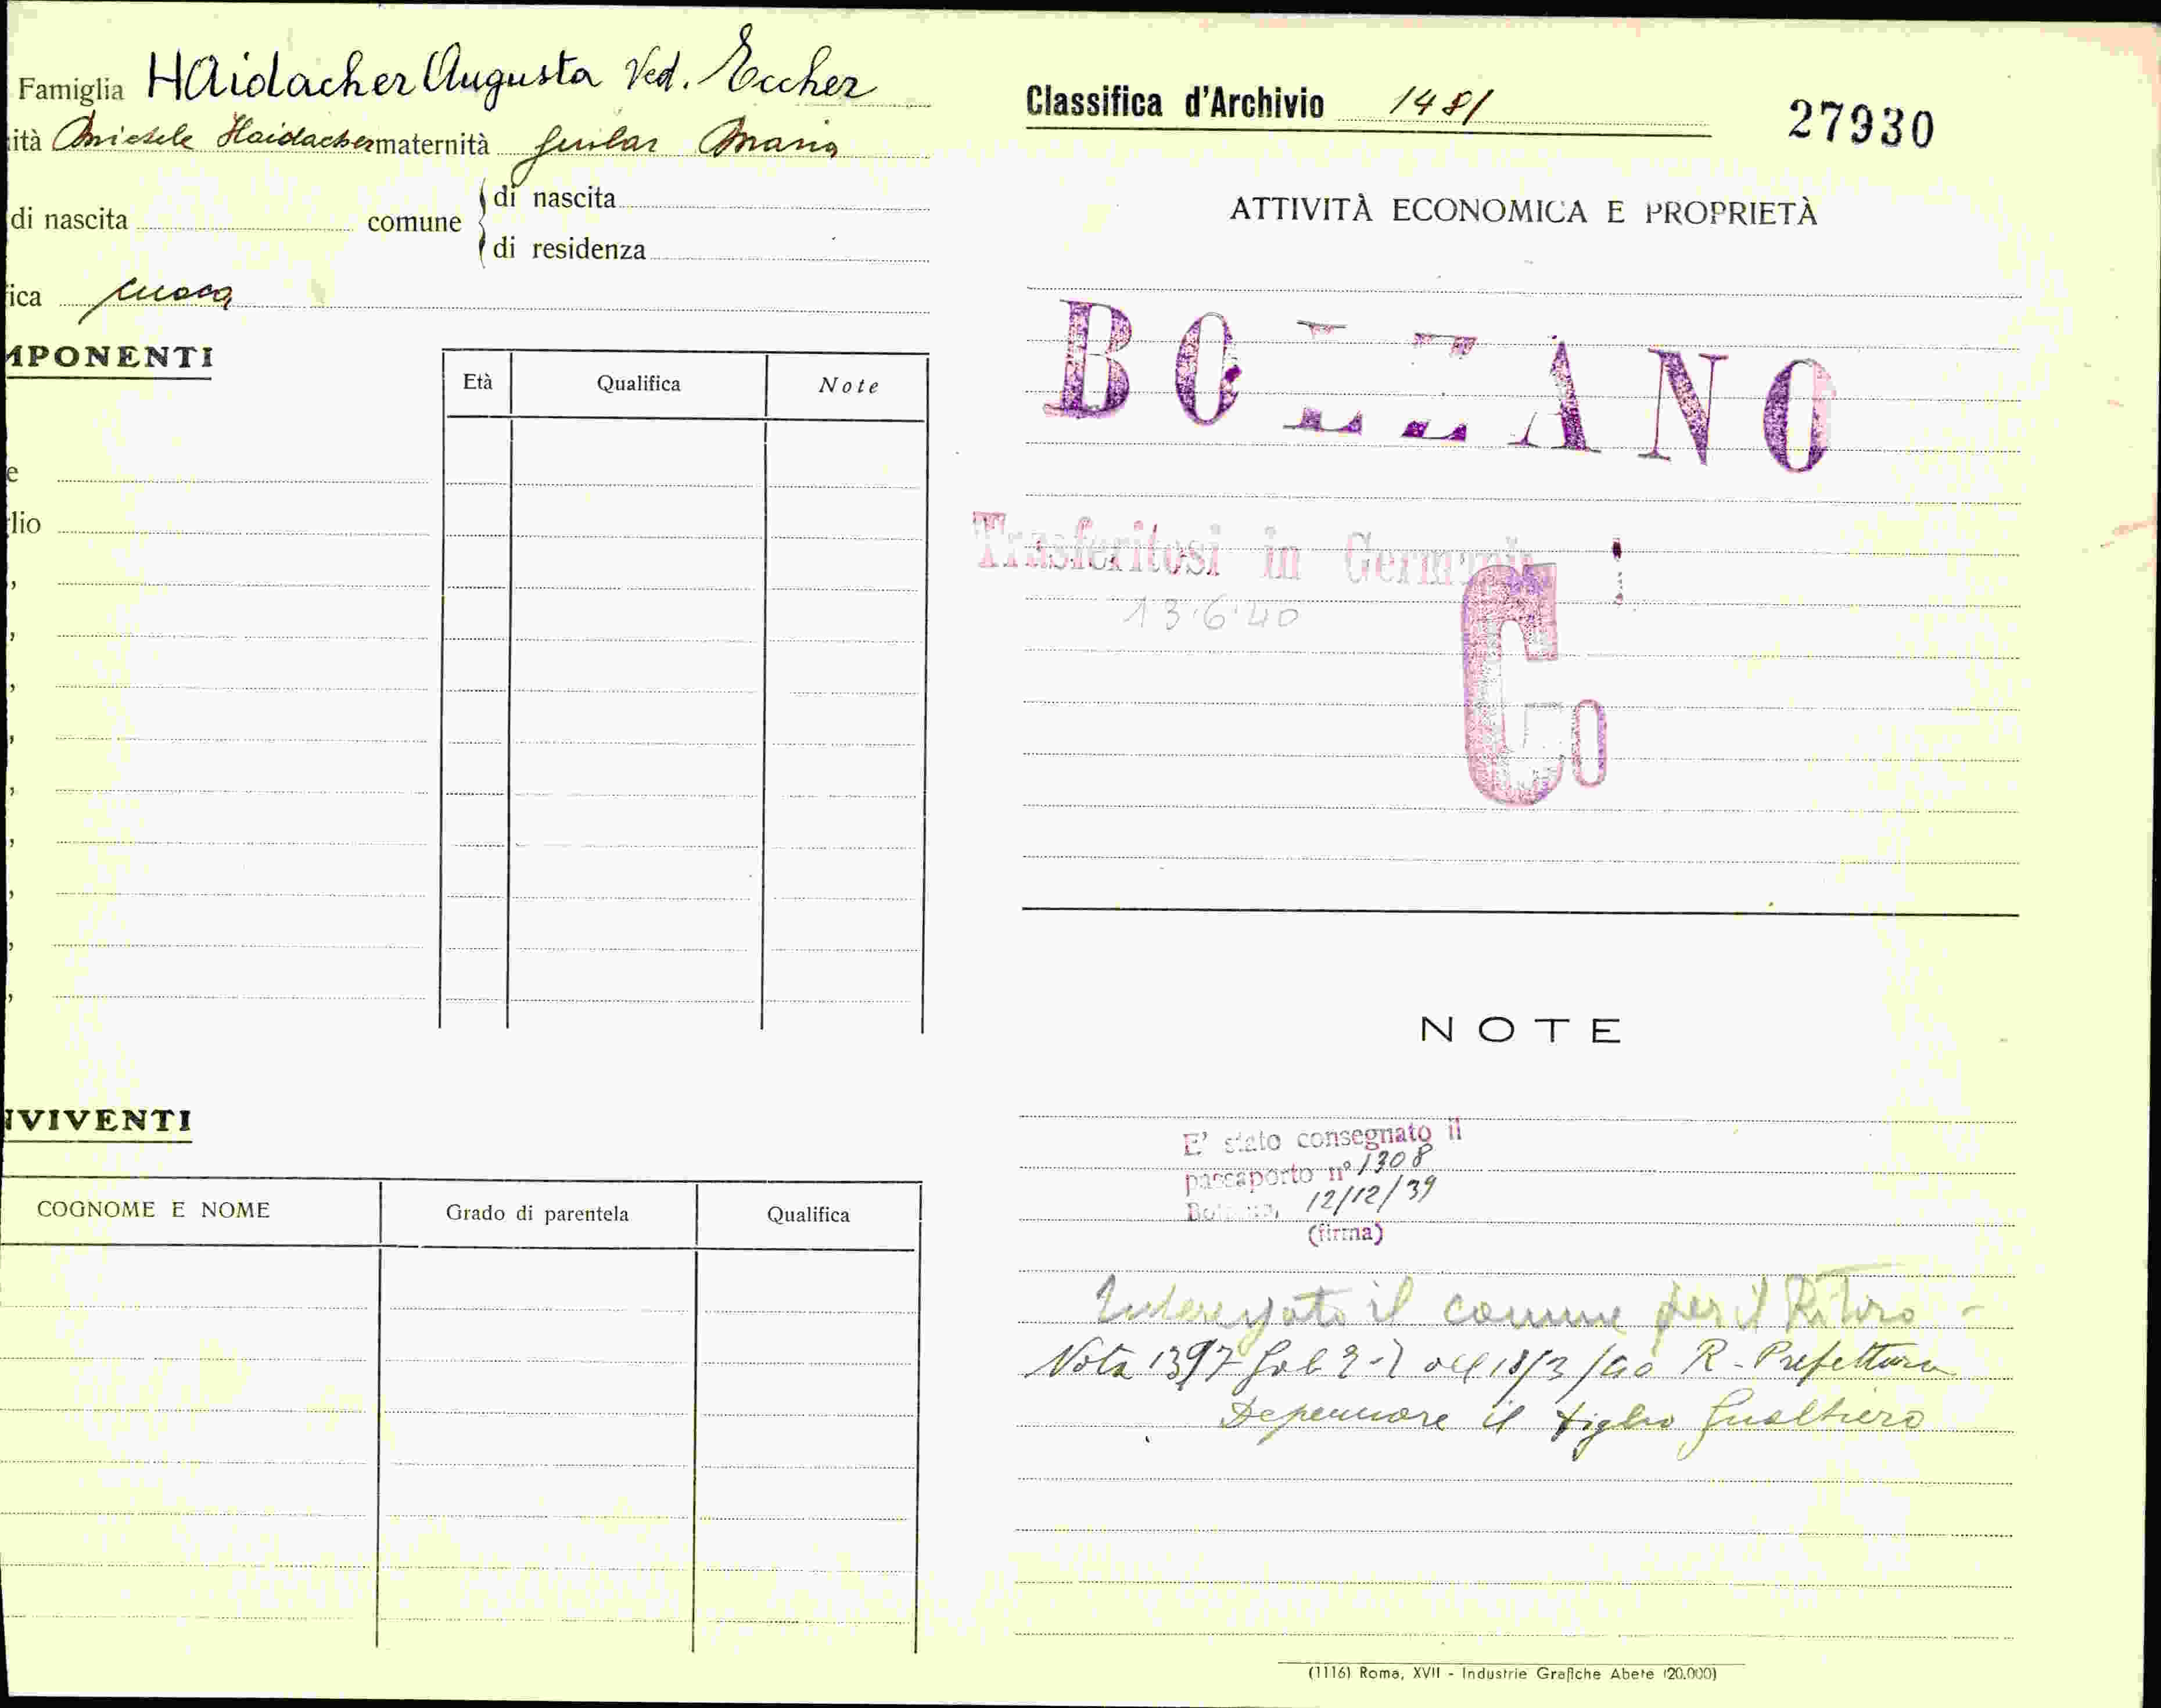 Famiglia Haidacher Augusta Ved. Eccher
ità Michele Haidacher maternità Maria
di nascita comune di nascita
di residenza
ica cuoca
MPONENTI
Età Qualifica Note
e
lio
NVIVENTI
COGNOME E NOME Grado di parentela Qualifica
Classifica d'Archivio 1481 27930
ATTIVITÀ ECONOMICA E PROPRIETÀ
BOLZANO
Trasferitosi in Germania
13·6·40
Co
NOTE
E' stato consegnato il
passaporto nº 1308
Bolzano, 12/12/39
(firma)
il comune per il Ritiro -
Nota 1397 Gab 18/3/40 R. Prefettura
Depennare il figlio Gualtiero
(1116) Roma, XVII - Industrie Grafiche Abete (20.000)